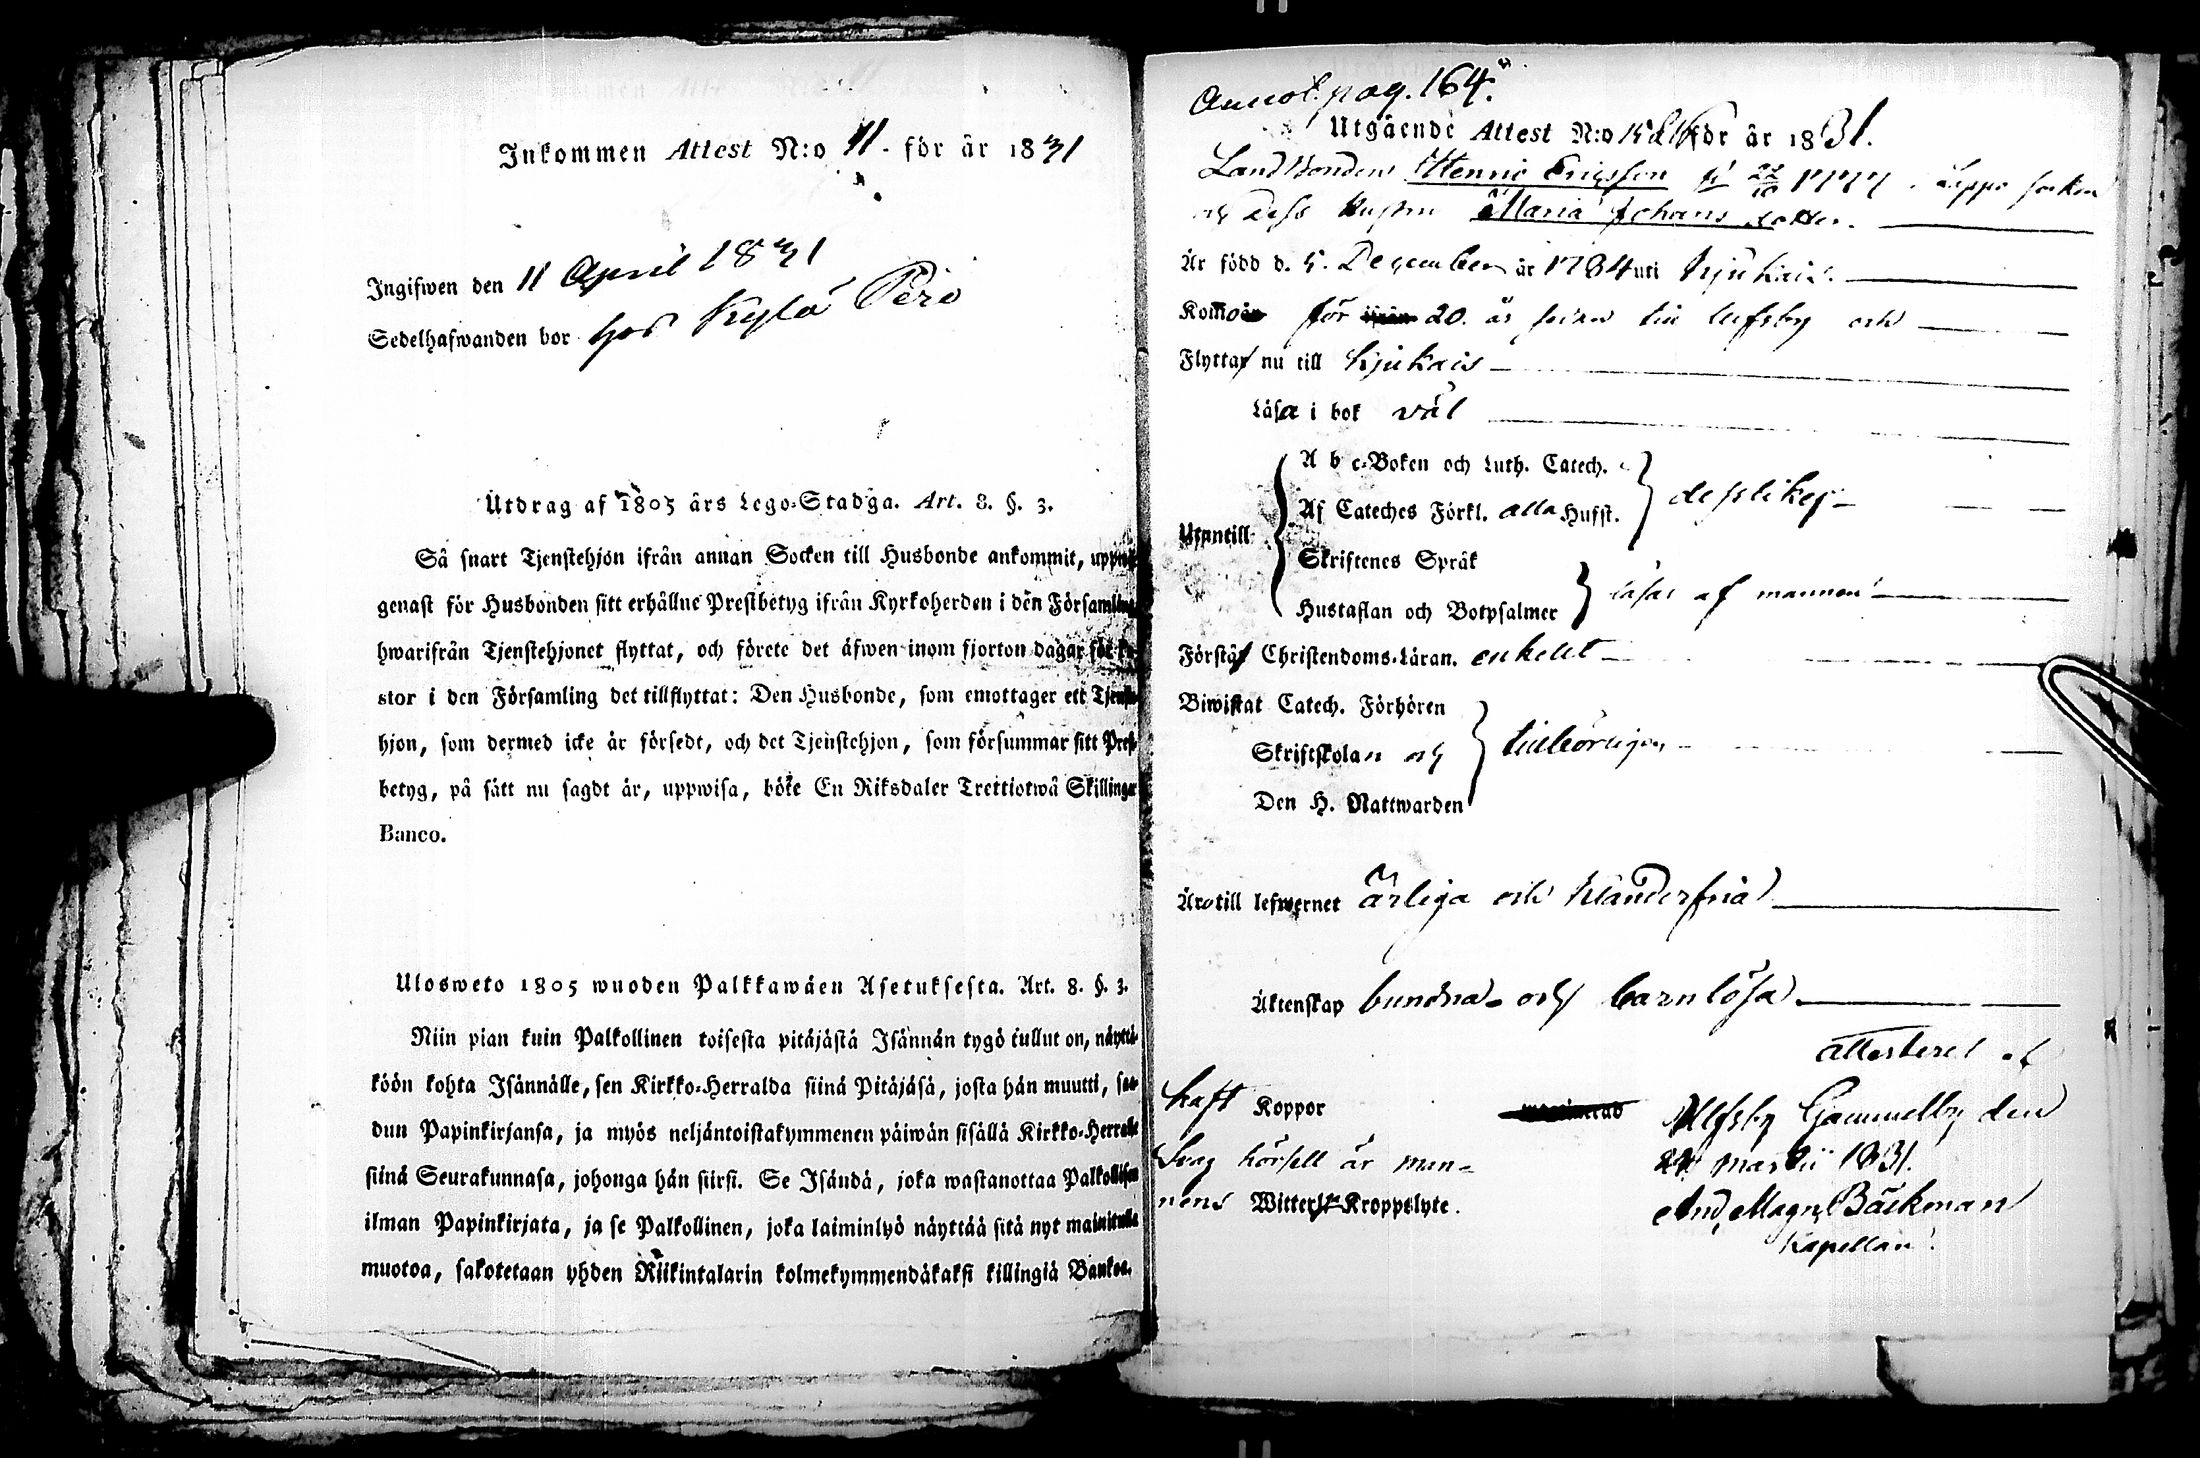 Inkommen Attest N:o 11. för år 1831
Ingifwen den 11 April 1831
Sedelhafwanden bor hos Kylä Pero
Utdrag af 1805 års Lego-Stadga. Art. 8. §. 3.
Så snart Tjenstehjon ifrån annan Socken till Husbonde ankommit, uppwise
genast för Husbonden sitt erhållne Prestbetyg ifrån Kyrkoherden i den Församling
hwarifrån Tjenstehjonet flyttat, och förete det äfwen inom fjorton dagar för
stor i den Församling det tillflyttat: Den Husbonde, som emottager ett Tjenste-
hjon, som dermed icke är försedt, och det Tjenstehjon, som försummar sitt Prest-
betyg, på sätt nu sagdt är, uppwisa, böte En Riksdaler Trettiotwå Skillingar
Banco.
Ulosweto 1805 wuoden Palkkawäen Asetuksesta. Art. 8. §. 3.
Niin pian kuin Palkollinen toisesta pitäjästä Isännän tygö tullut on, näyttä-
köön kohta Isännälle, sen Kirkko-Herralda siinä Pitäjäsä, josta hän muutti, saa-
dun Papinkirjansa, ja myös neljäntoistakymmenen päiwän sisällä Kirkko-Herralle
siinä Seurakunnasa, johonga hän siirsi. Se Isändä, joka wastanottaa Palkollisen
ilman Papinkirjata, ja se Palkollinen, joka laiminlyö näyttää sitä nyt mainitulla
muotoa, sakotetaan yhden Riikintalarin kolmekymmendäkaksi killingiä Bankoa.
Annot. pag. 164.
Utgående Attest N:o för år 1831.
Landbonden Henric Ericsson fd 22/10 1777 i Eppo socken
och Dess hustru Maria Johans dotter.
Är född d. 5. December år 1784 uti Kjukais.
Kommo för 20. år sedan till Ulfsby och
Flytta nu till Kjukais
Läsa i bok väl
Utantill
A b c-Boken och Luth. Catech.
Af Cateches Förkl. alla Husst.
desslikes
Skriftenes Språk
Hustaflan och Botpsalmer
läsas af mannen
Förstå Christendoms-Läran. enkelt
Biwistat Catech. Förhören
Skriftskolan och
Den H. Nattwarden
tillbörligen
Äro till lefwernet ärliga och klanderfria
Äktenskap bundna och barnlösa
attesterat af
haft Koppor
Ulfsby Gammelby den
Svag hörsell är man-
22 martii 1831.
nens Witterl. Kroppslyte.
And. Magn. Bäckman
Kapellan.